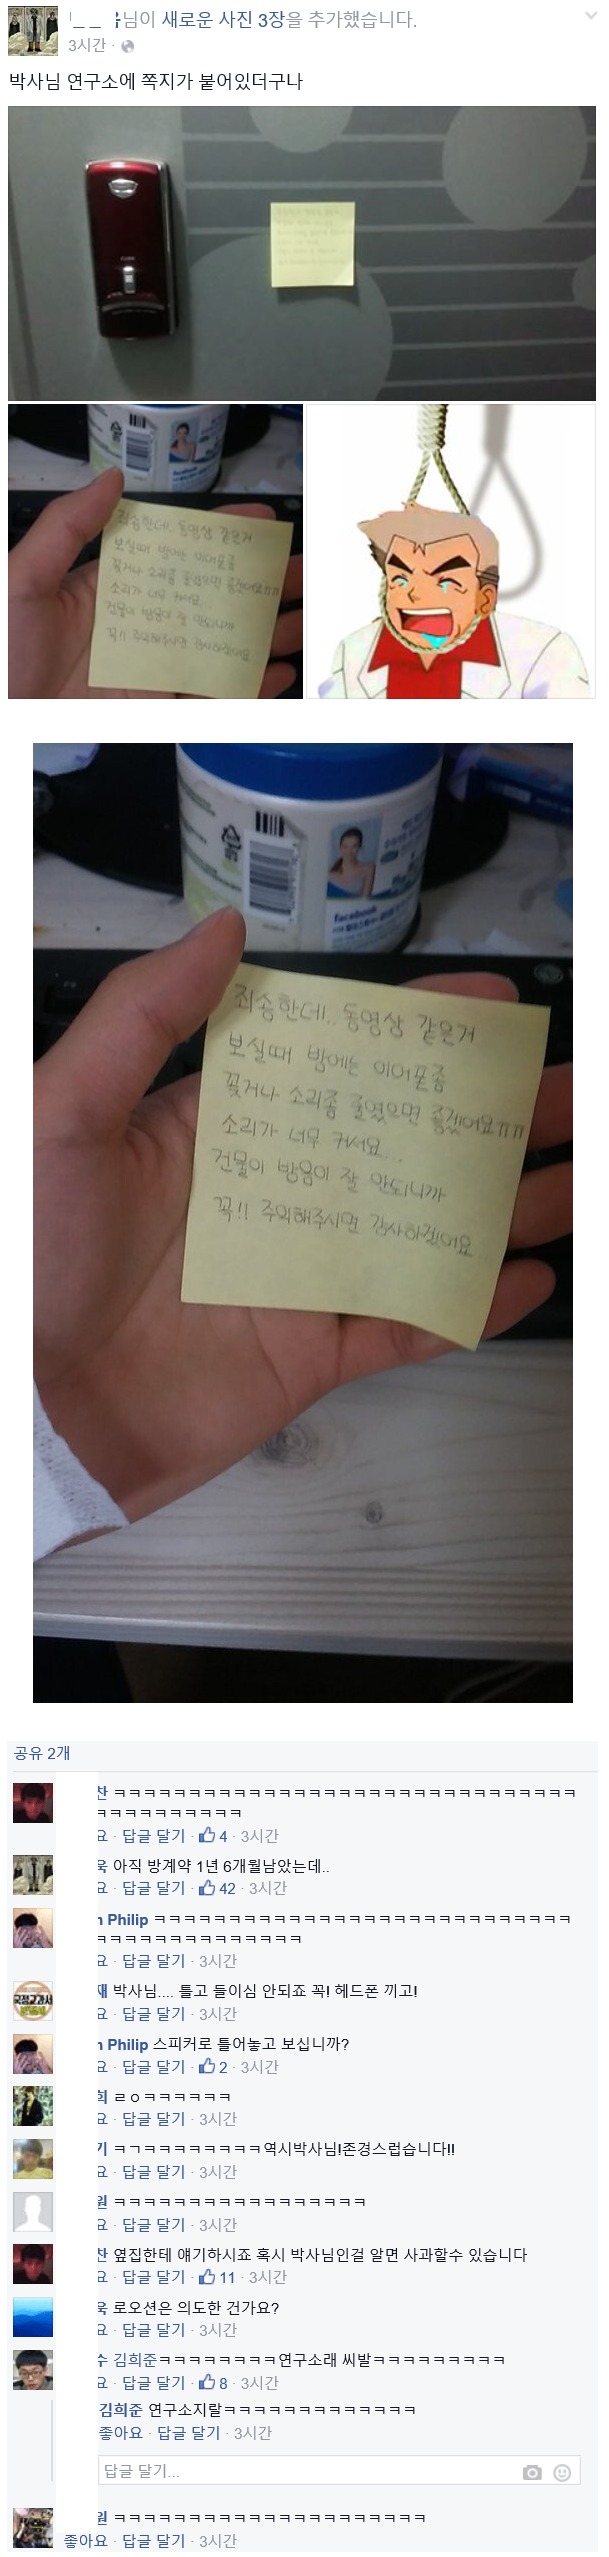 님이 새로운 사진 3장을 추가했습니다.
3시간
박사님 연구소에 쪽지가 붙어있더구나
죄송한데.. 동영상 같은거
보실때 밤에는 이어폰좀
꽂거나 소리좀 줄였으면 좋겠어요ㅠㅠ
소리가 너무 커서요...
건물이 방음이 잘 안되니까
꼭!! 주의해주시면 감사하겠어요
facebook
죄송한데.. 동영상 같은거
보실때 밤에는 이어폰좀
꽂거나 소리좀 줄였으면 좋겠어요ㅠㅠ
소리가 너무 커서요...
건물이 방음이 잘 안되니까
꼭!! 주의해주시면 감사하겠어요
공유 2개
찬 ㅋㅋㅋㅋㅋㅋㅋㅋㅋㅋㅋㅋㅋㅋㅋㅋㅋㅋㅋㅋㅋㅋㅋㅋㅋㅋㅋㅋㅋㅋㅋ
ㅋㅋㅋㅋㅋㅋㅋㅋㅋㅋ
요 · 답글 달기 · 4 · 3시간
욱 아직 방계약 1년 6개월남았는데..
요 · 답글 달기 · 42 · 3시간
n Philip ㅋㅋㅋㅋㅋㅋㅋㅋㅋㅋㅋㅋㅋㅋㅋㅋㅋㅋㅋㅋㅋㅋㅋㅋㅋㅋㅋㅋ
ㅋㅋㅋㅋㅋㅋㅋㅋㅋㅋㅋㅋㅋㅋ
요 · 답글 달기 · 3시간
재 박사님.... 틀고 들이심 안되죠 꼭! 헤드폰 끼고!
요 · 답글 달기 · 3시간
n Philip 스피커로 틀어놓고 보십니까?
요 · 답글 달기 · 2 · 3시간
희 ㄹㅇㅋㅋㅋㅋㅋㅋ
요 · 답글 달기 · 3시간
기 ㅋㄱㅋㅋㅋㅋㅋㅋㅋㅋ역시박사님!존경스럽습니다!!
요 · 답글 달기 · 3시간
원 ㅋㅋㅋㅋㅋㅋㅋㅋㅋㅋㅋㅋㅋㅋㅋㅋㅋ
요 · 답글 달기 · 3시간
찬 옆집한테 얘기하시죠 혹시 박사님인걸 알면 사과할수 있습니다
요 · 답글 달기 · 11 · 3시간
욱 로오션은 의도한 건가요?
요 · 답글 달기 · 3시간
수 김희준ㅋㅋㅋㅋㅋㅋㅋㅋ연구소래 씨발ㅋㅋㅋㅋㅋㅋㅋㅋㅋ
요 · 답글 달기 · 8 · 3시간
김희준 연구소지랄ㅋㅋㅋㅋㅋㅋㅋㅋㅋㅋㅋㅋㅋ
좋아요 · 답글 달기 · 3시간
답글 달기...
원 ㅋㅋㅋㅋㅋㅋㅋㅋㅋㅋㅋㅋㅋㅋㅋㅋㅋㅋㅋㅋㅋ
좋아요 · 답글 달기 · 3시간